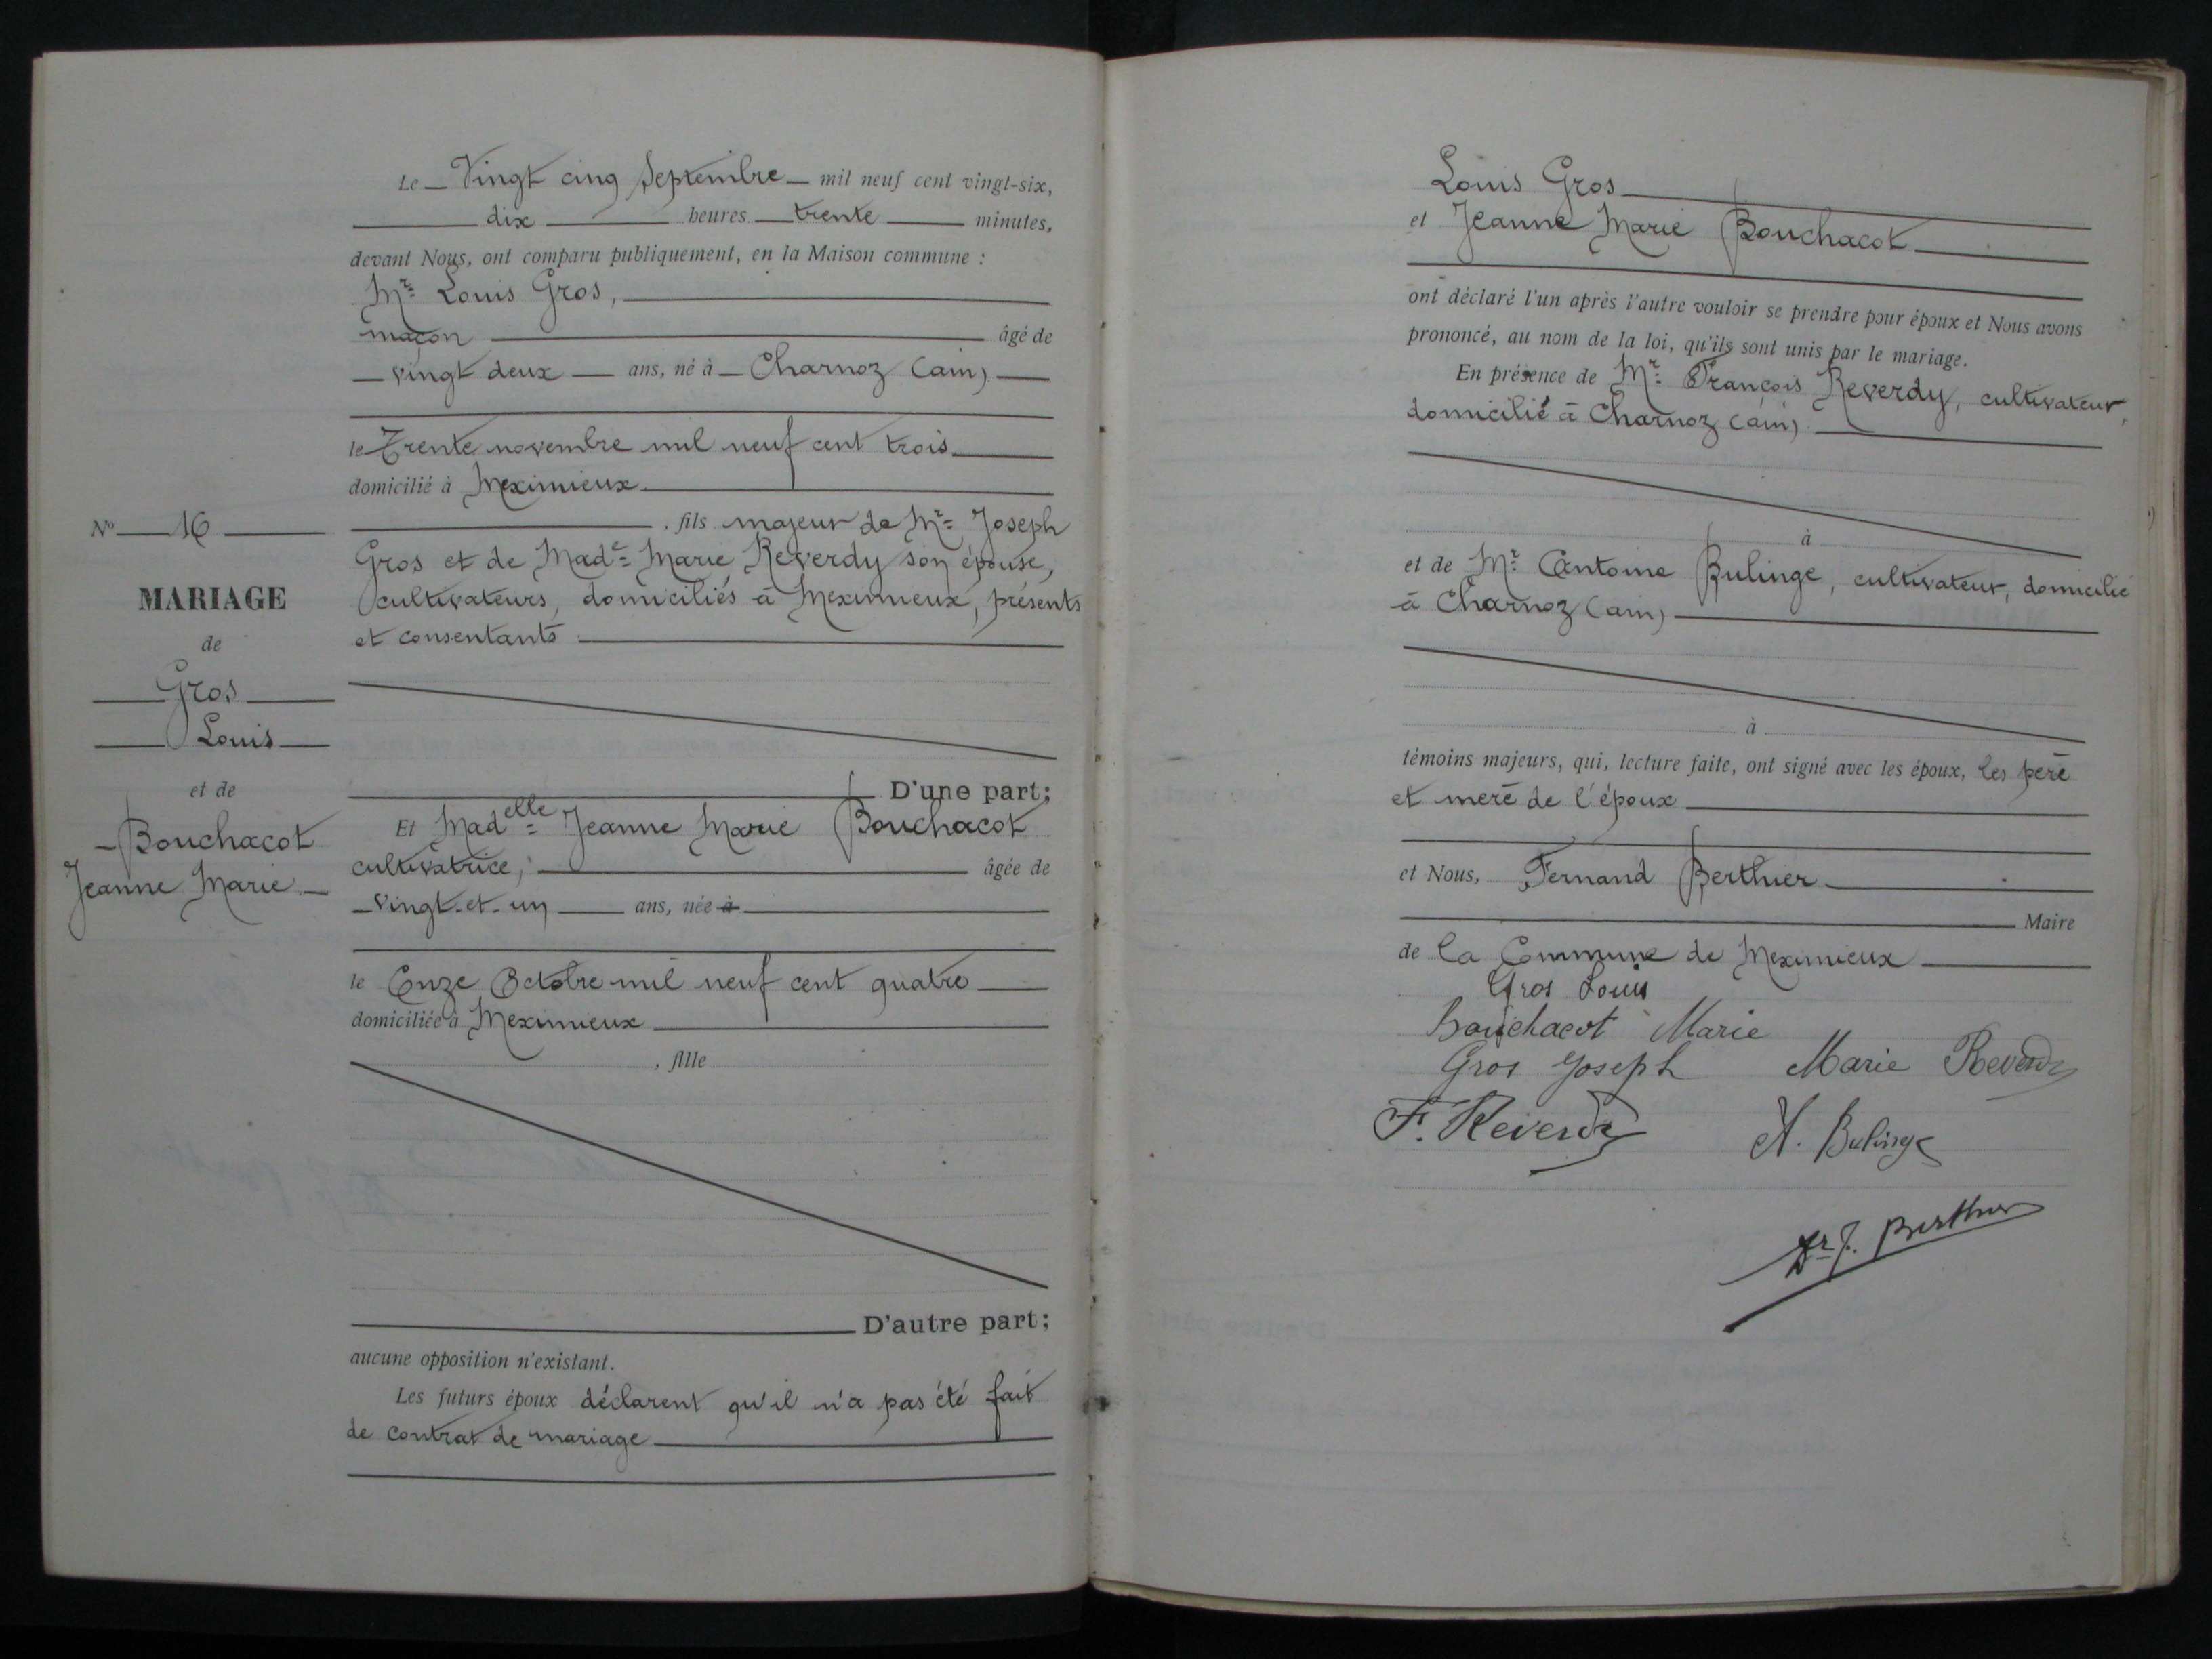 Le Vingt cinq Septembre mil neuf cent vingt-six,
dix heures trente minutes,
devant Nous, ont comparu publiquement, en la Maison commune :
Mr Louis Gros,
maçon âgé de
vingt deux ans, né à Charnoz (ain)
le Trente novembre mil neuf cent trois
domicilié à Meximieux
, fils majeur de Mr Joseph
Gros et de Made Marie Reverdy son épouse,
cultivateurs, domiciliés à Meximieux, présents
et consentants
D'une part;
Et Madelle Jeanne Marie Bouchacot
cultivatrice, âgée de
Vingt-et-un ans, née à
le Onze Octobre mil neuf cent quatre
domiciliée à Meximieux
, fille
D'autre part;
aucune opposition n'existant.
Les futurs époux déclarent qu'il n'a pas été fait
de contrat de mariage
No 16
MARIAGE
de
Gros
Louis
et de
Bouchacot
Jeanne Marie
Louis Gros
et Jeanne Marie Bouchacot
ont déclaré l'un après l'autre vouloir se prendre pour époux et Nous avons
prononcé, au nom de la loi, qu'ils sont unis par le mariage.
En présence de Mr François Reverdy, cultivateur,
domicilié à Charnoz (ain)
à
et de Mr Antoine Bulinge, cultivateur, domicilié
à Charnoz (ain)
à
témoins majeurs, qui, lecture faite, ont signé avec les époux, les père
et mère de l'époux
et Nous, Fernand Berthier
Maire
de la Commune de Meximieux
Gros Louis
Bouchacot Marie
Gros Joseph Marie Reverdy
F. Reverdy A. Bulinge
Dr F. Berthier